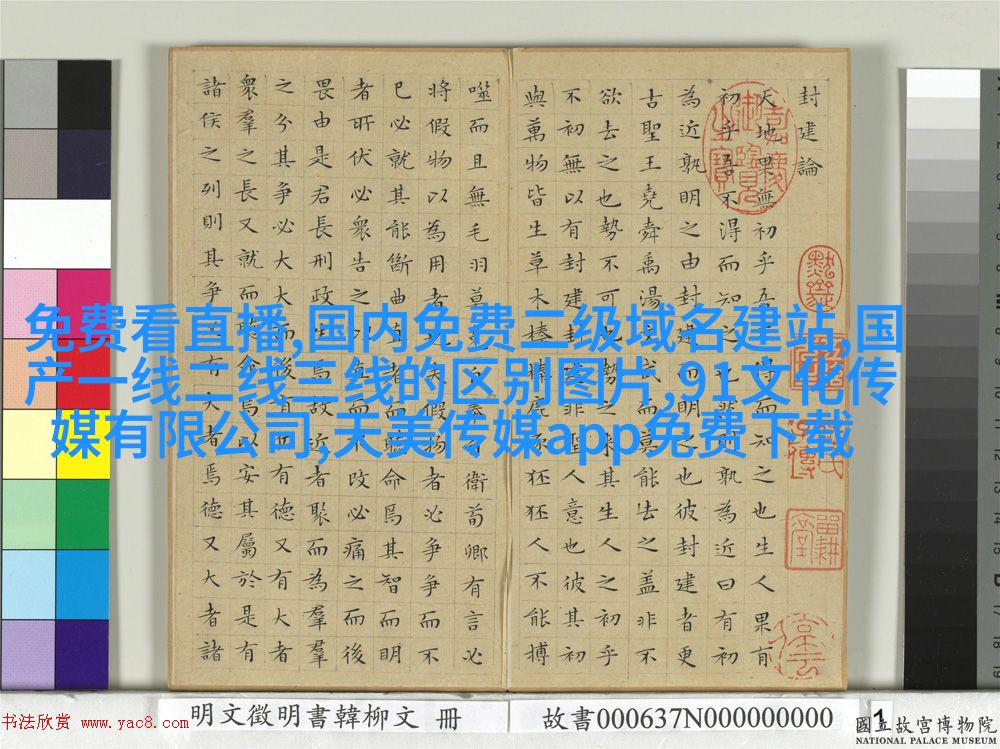 封建論
天地果無初乎吾不得而知之也生人果有
初乎吾不得而知之也然則孰為近曰有初
為近孰明之由封建而明之也彼封建者更
古聖王堯舜禹湯文武而莫能去之蓋非不
欲去之也勢不可也勢之來其生人之初乎
不初無以有封建封建非聖人意也彼其初
與萬物皆生草木榛榛鹿豕狉狉人不能搏
噬而且無毛羽莫克自奉自衛荀卿有言必
將假物以為用者也夫假物者必爭爭而不
已必就其能斷曲直者而聽命焉其智而明
者所伏必衆告之以直而不改必痛之而後
畏由是君長刑政生焉故近者聚而為羣
之分其爭必大大而後有兵有德又有大者
衆羣之長又就而聽命焉以安其屬於是有
諸侯之列則其爭又有大者焉德又大者諸
免费看直播,国内免费二级域名建站,国
产一线二线三线的区别图片,91文化传
媒有限公司,天美传媒app免费下载
书法欣赏 www.yac8.com
明文徵明書韓柳文 冊
故書000637N000000000
1
國立故宮博物院
NATIONAL PALACE MUSEUM